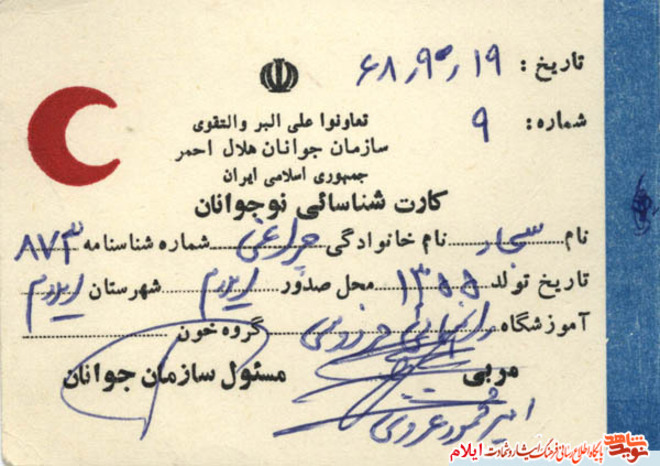 تاریخ: ۶۸٫۹٫۱۹
شماره: ۹
تعاونوا علی البر والتقوی
سازمان جوانان هلال احمر
جمهوری اسلامی ایران
کارت شناسائی نوجوانان
نام سجاد نام خانوادگی چراغی شماره شناسنامه ۸۷۳
تاریخ تولد ۱۳۵۵ محل صدور ایلام شهرستان ایلام
آموزشگاه راهنمائی گروه خون
مربی مسئول سازمان جوانان
نوید شاهد
پایگاه اطلاع رسانی فرهنگ ایثار و شهادت ایلام